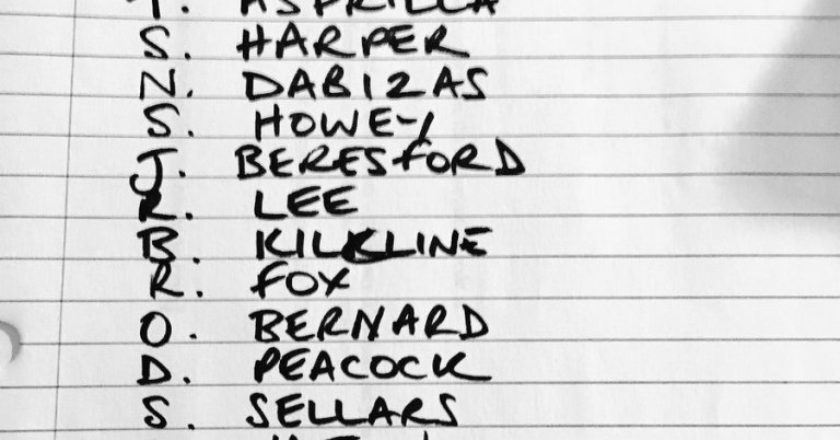 T. ASPRILLA
S. HARPER
N. DABIZAS
S. HOWEY
J. BERESFORD
R. LEE
B. KILKLINE
R. FOX
O. BERNARD
D. PEACOCK
S. SELLARS